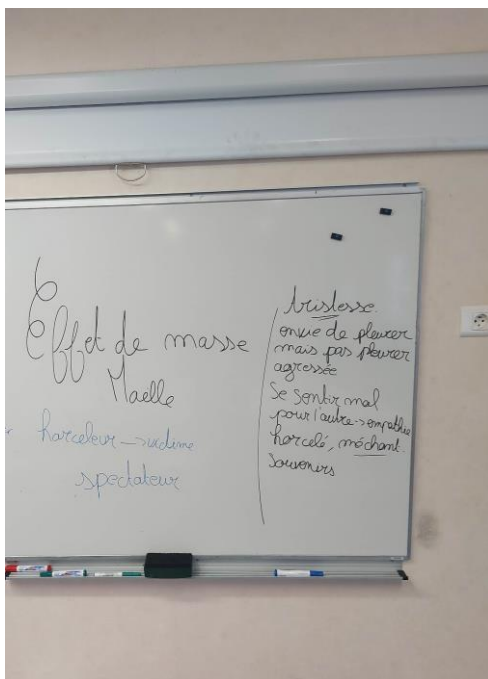 Effet de masse
Maelle
harceleur → victime
spectateur
tristesse.
envie de pleurer
mais pas pleurer
agressée
Se sentir mal
pour l'autre → empathie
harcelé, méchant.
Souvenirs